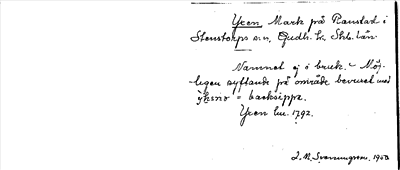 Yxen, Mark på Ranstad i
Stenstorps s:n, Gudh. hd, Skb. län.
Namnet ej i bruk. - Möj-
ligen syftande på område bevuxet med
= backsippa.
Yxen hm. 1792.
J. A. Svenungsson. 1950